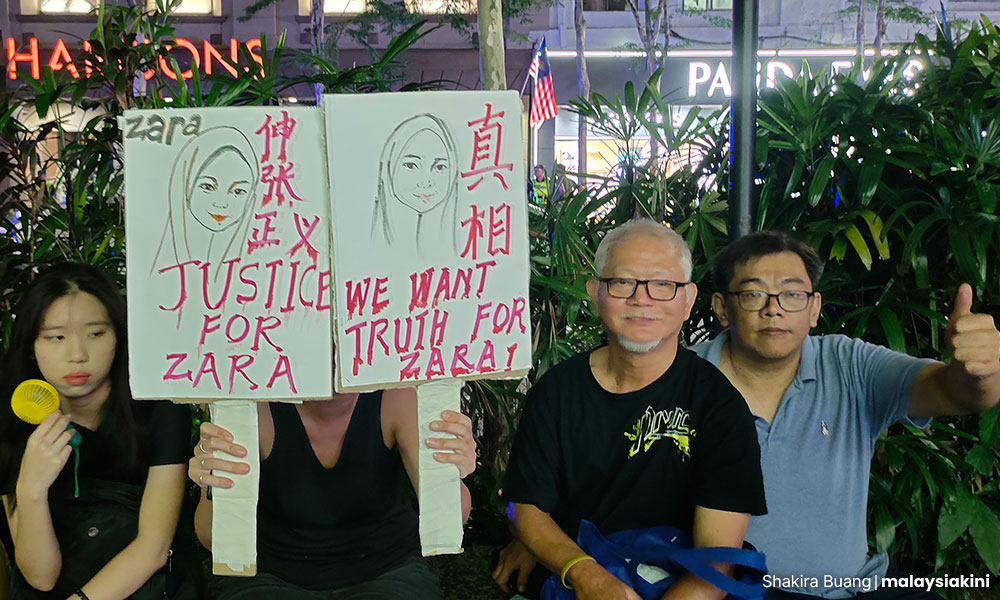 HAMSONS
zara
伸
张
正义
JUSTICE
FOR
ZARA
真
相
WE WANT
TRUTH FOR
ZARA!
Shakira Buang | malaysiakini